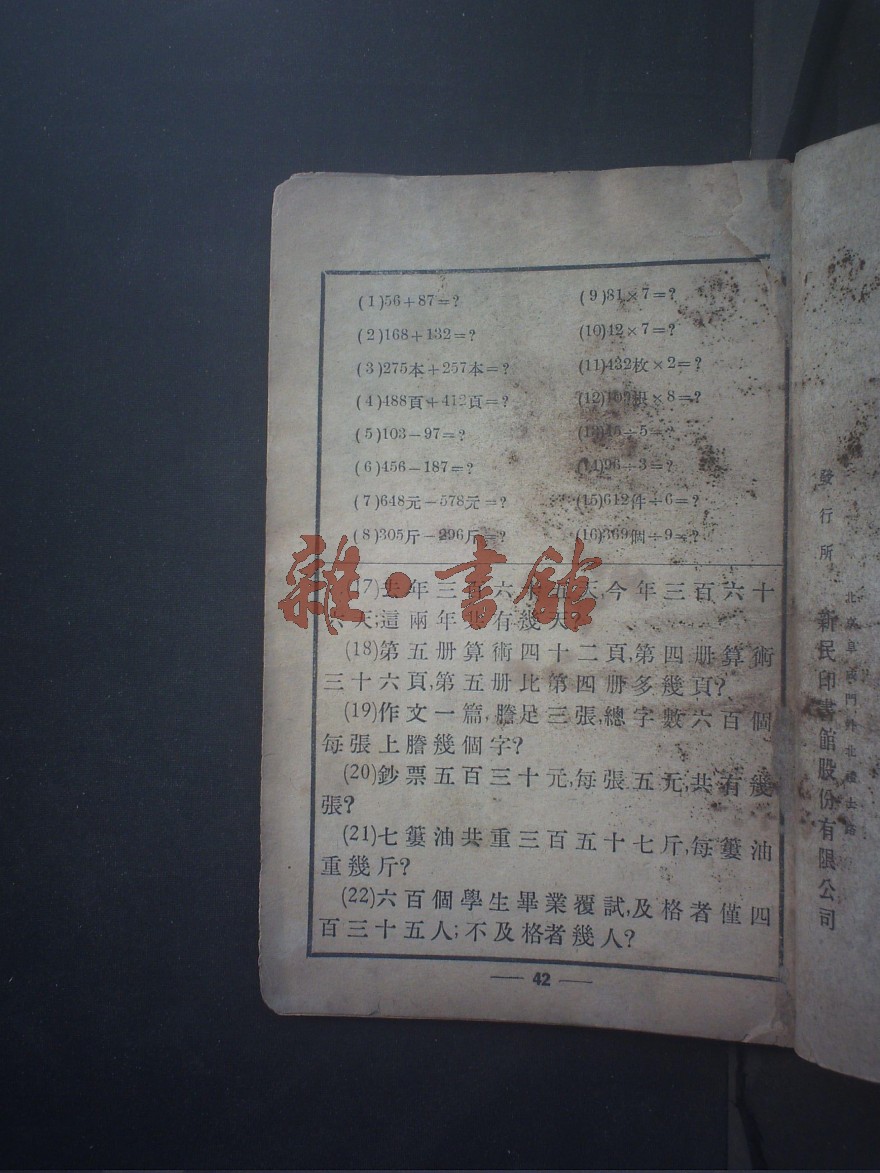 (1)56+87=?
(2)168+132=?
(3)275本+257本=?
(4)488頁+412頁=?
(5)103-97=?
(6)456-187=?
(7)648元-578元=?
(8)305斤-296斤=?
(9)81×7=?
(10)42×7=?
(11)432枚×2=?
(12) ×8=?
(13)45÷5=?
(14)96÷3=?
(15)612件÷6=?
(16)369個÷9=?
(17)去年三百六十五天,今年三百六十
天;這兩年共有幾天?
(18)第五册算術四十二頁,第四册算術
三十六頁,第五册比第四册多幾頁?
(19)作文一篇,謄足三張,總字數六百個
每張上謄幾個字?
(20)鈔票五百三十元,每張五元,共有幾
張?
(21)七簍油共重三百五十七斤,每簍油
重幾斤?
(22)六百個學生畢業覆試,及格者僅四
百三十五人;不及格者幾人?
— 42 —
雜·書館
發行所
新民印書館股份有限公司